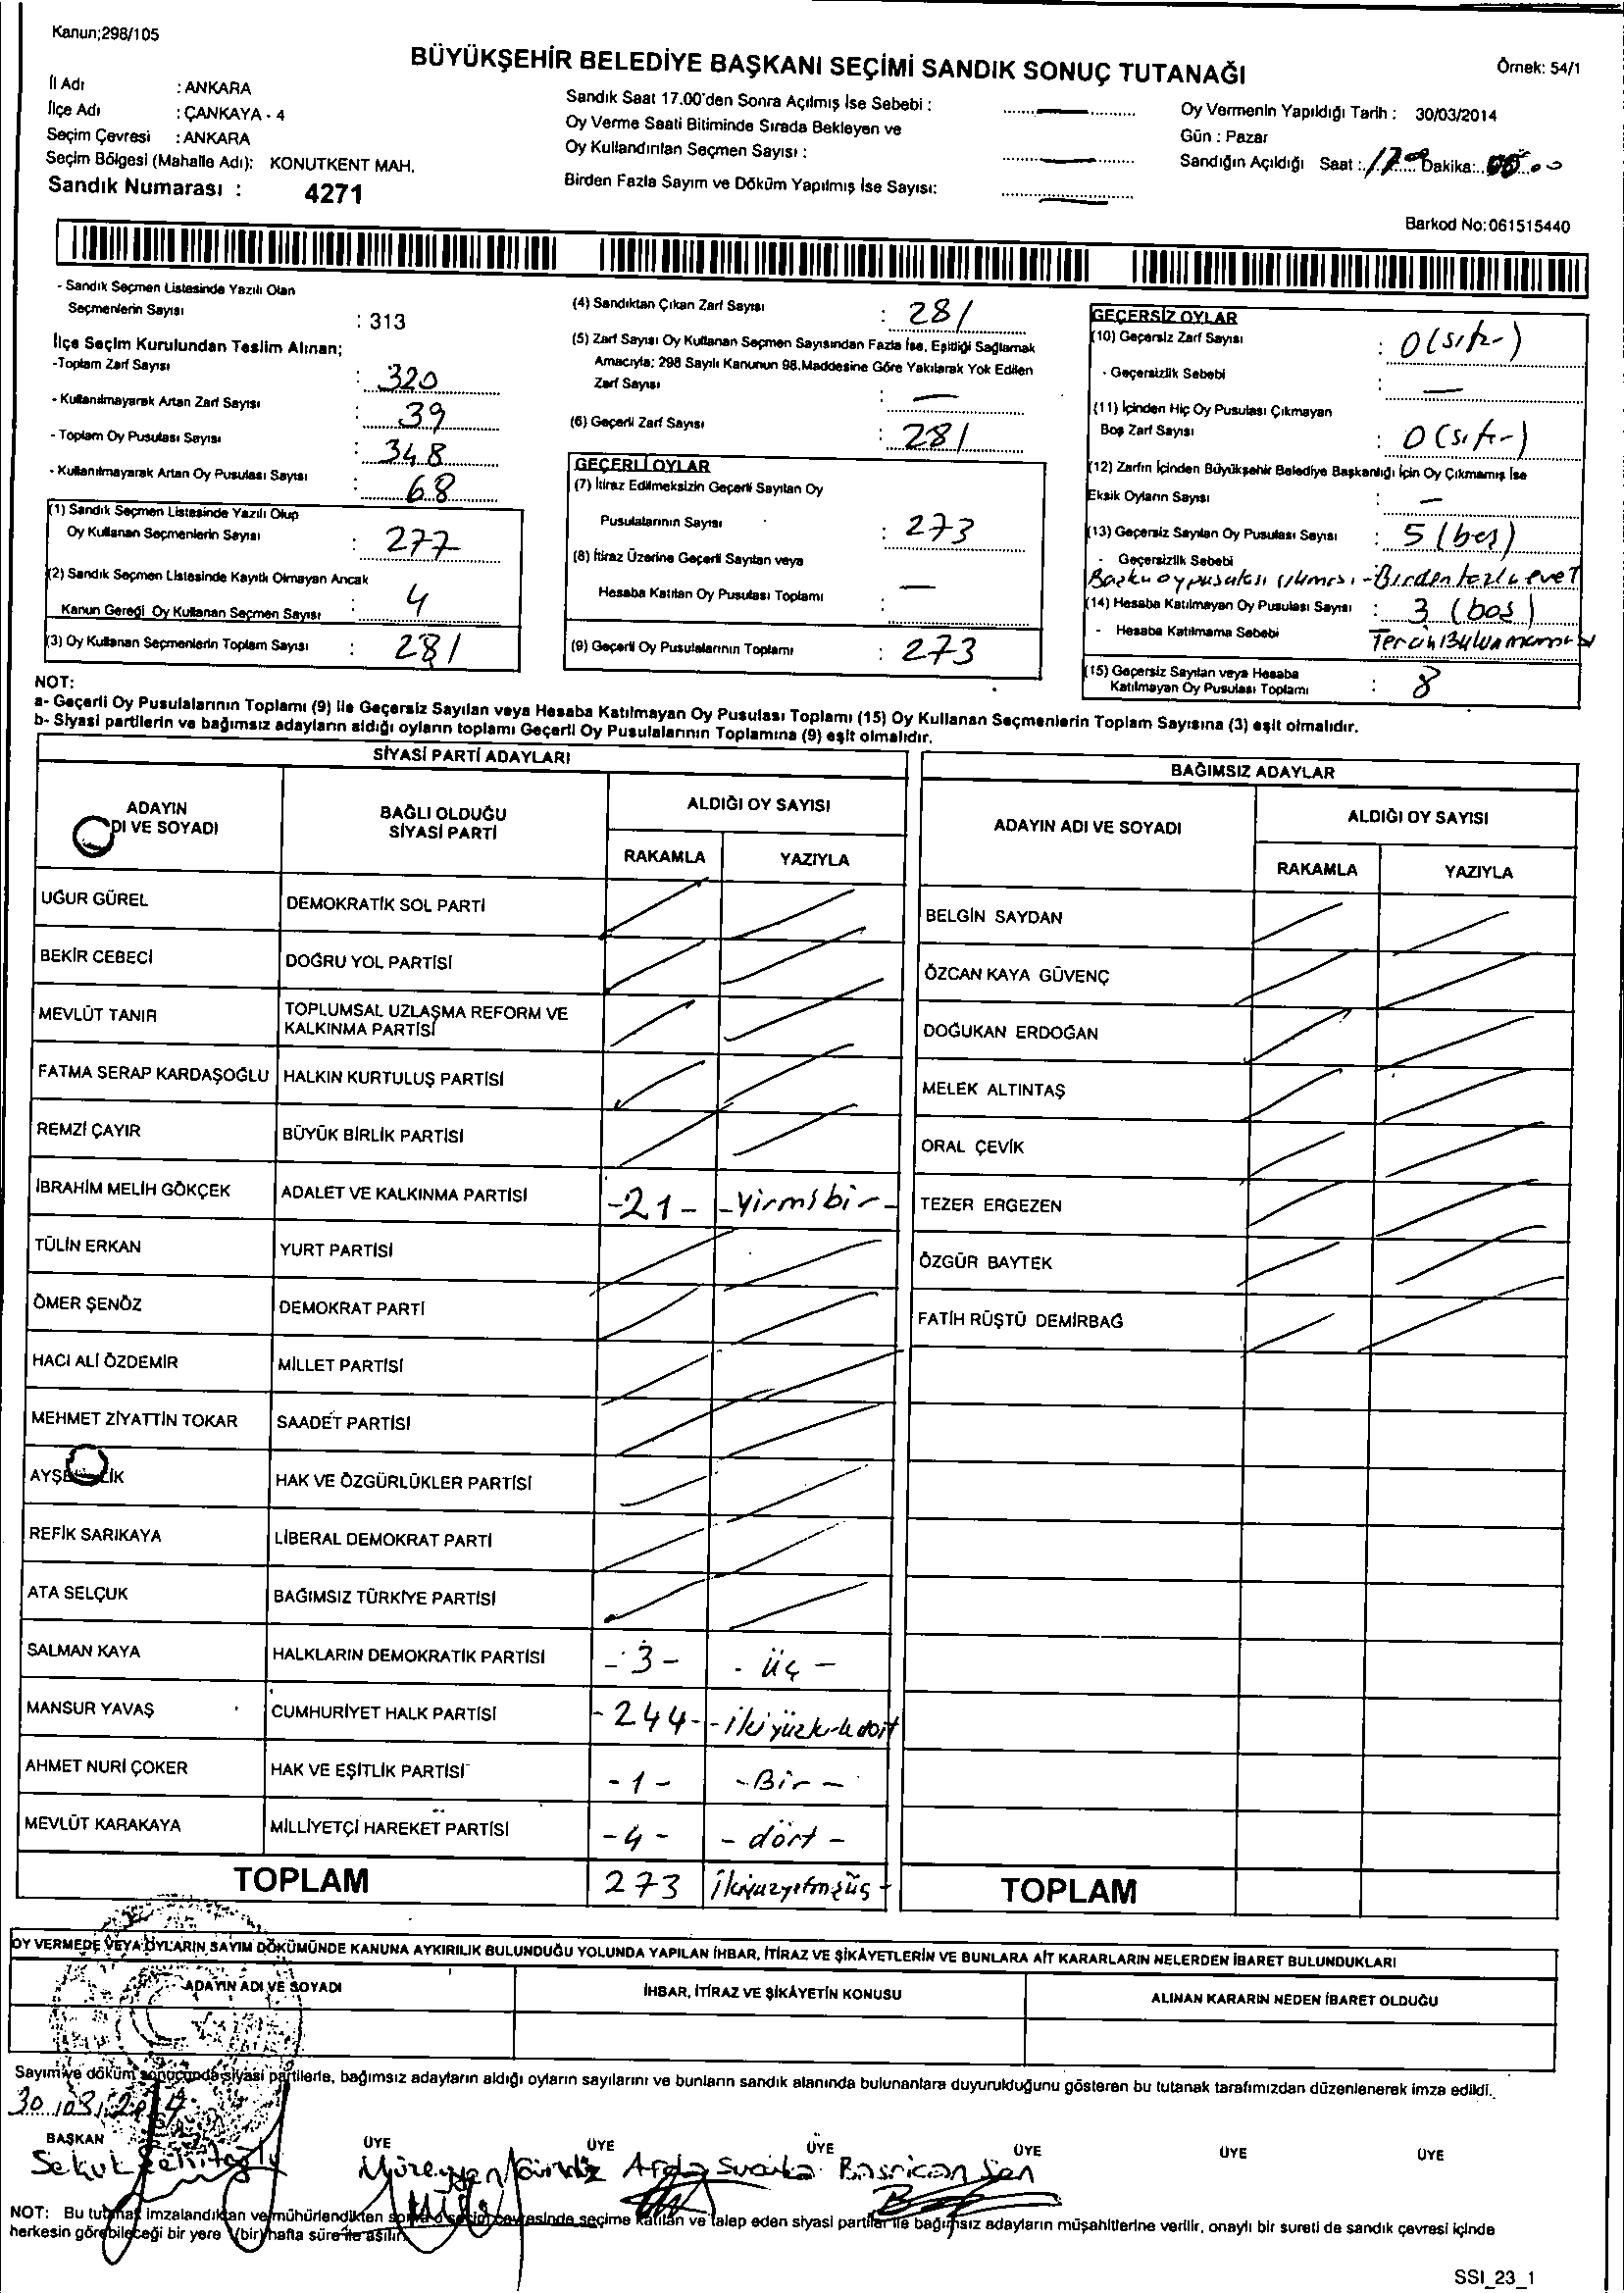 Kanun;298/105
BÜYÜKŞEHİR BELEDİYE BAŞKANI SEÇİMİ SANDIK SONUÇ TUTANAĞI
Örnek: 54/1
İl Adı : ANKARA
İlçe Adı : ÇANKAYA - 4
Seçim Çevresi : ANKARA
Seçim Bölgesi (Mahalle Adı): KONUTKENT MAH.
Sandık Numarası : 4271
Sandık Saat 17.00'den Sonra Açılmış İse Sebebi :
Oy Verme Saati Bitiminde Sırada Bekleyen ve
Oy Kullandırılan Seçmen Sayısı :
Birden Fazla Sayım ve Döküm Yapılmış İse Sayısı:
Oy Vermenin Yapıldığı Tarih : 30/03/2014
Gün : Pazar
Sandığın Açıldığı Saat : 17 00 Dakika: 00
Barkod No:061515440
- Sandık Seçmen Listesinde Yazılı Olan
Seçmenlerin Sayısı : 313
İlçe Seçim Kurulundan Teslim Alınan;
-Toplam Zarf Sayısı : 320
- Kullanılmayarak Artan Zarf Sayısı : 39
- Toplam Oy Pusulası Sayısı : 348
- Kullanılmayarak Artan Oy Pusulası Sayısı : 68
(1) Sandık Seçmen Listesinde Yazılı Olup
Oy Kullanan Seçmenlerin Sayısı : 277
(2) Sandık Seçmen Listesinde Kayıtlı Olmayan Ancak
Kanun Gereği Oy Kullanan Seçmen Sayısı : 4
(3) Oy Kullanan Seçmenlerin Toplam Sayısı : 281
(4) Sandıktan Çıkan Zarf Sayısı : 281
(5) Zarf Sayısı Oy Kullanan Seçmen Sayısından Fazla İse, Eşitliği Sağlamak
Amacıyla; 298 Sayılı Kanunun 98.Maddesine Göre Yakılarak Yok Edilen
Zarf Sayısı : —
(6) Geçerli Zarf Sayısı : 281
GEÇERLİ OYLAR
(7) İtiraz Edilmeksizin Geçerli Sayılan Oy
Pusulalarının Sayısı : 273
(8) İtiraz Üzerine Geçerli Sayılan veya
Hesaba Katılan Oy Pusulası Toplamı : —
(9) Geçerli Oy Pusulalarının Toplamı : 273
GEÇERSİZ OYLAR
(10) Geçersiz Zarf Sayısı : 0 (sıfır)
- Geçersizlik Sebebi : —
(11) İçinden Hiç Oy Pusulası Çıkmayan
Boş Zarf Sayısı : 0 (sıfır)
(12) Zarfın İçinden Büyükşehir Belediye Başkanlığı İçin Oy Çıkmamış İse
Eksik Oyların Sayısı : —
(13) Geçersiz Sayılan Oy Pusulası Sayısı : 5 (beş)
- Geçersizlik Sebebi
Başka oy pusulası çıkması - Birden fazla evet
(14) Hesaba Katılmayan Oy Pusulası Sayısı : 3 (boş)
- Hesaba Katılmama Sebebi Tercih Bulunmaması
(15) Geçersiz Sayılan veya Hesaba
Katılmayan Oy Pusulası Toplamı : 8
NOT:
a- Geçerli Oy Pusulalarının Toplamı (9) ile Geçersiz Sayılan veya Hesaba Katılmayan Oy Pusulası Toplamı (15) Oy Kullanan Seçmenlerin Toplam Sayısına (3) eşit olmalıdır.
b- Siyasi partilerin ve bağımsız adayların aldığı oyların toplamı Geçerli Oy Pusulalarının Toplamına (9) eşit olmalıdır.
SİYASİ PARTİ ADAYLARI
ADAYIN
DI VE SOYADI
BAĞLI OLDUĞU
SİYASİ PARTİ
ALDIĞI OY SAYISI
RAKAMLA YAZIYLA
UĞUR GÜREL DEMOKRATİK SOL PARTİ
BEKİR CEBECİ DOĞRU YOL PARTİSİ
MEVLÜT TANIR TOPLUMSAL UZLAŞMA REFORM VE
KALKINMA PARTİSİ
FATMA SERAP KARDAŞOĞLU HALKIN KURTULUŞ PARTİSİ
REMZİ ÇAYIR BÜYÜK BİRLİK PARTİSİ
İBRAHİM MELİH GÖKÇEK ADALET VE KALKINMA PARTİSİ -21- -Yirmibir-
TÜLİN ERKAN YURT PARTİSİ
ÖMER ŞENÖZ DEMOKRAT PARTİ
HACI ALİ ÖZDEMİR MİLLET PARTİSİ
MEHMET ZİYATTİN TOKAR SAADET PARTİSİ
HAK VE ÖZGÜRLÜKLER PARTİSİ
REFİK SARIKAYA LİBERAL DEMOKRAT PARTİ
ATA SELÇUK BAĞIMSIZ TÜRKİYE PARTİSİ
SALMAN KAYA HALKLARIN DEMOKRATİK PARTİSİ -3- - üç -
MANSUR YAVAŞ CUMHURİYET HALK PARTİSİ -244- -ikiyüzkırkdört
AHMET NURİ ÇOKER HAK VE EŞİTLİK PARTİSİ -1- -Bir-
MEVLÜT KARAKAYA MİLLİYETÇİ HAREKET PARTİSİ -4- - dört -
TOPLAM 273 ikiyüzyetmişüç
BAĞIMSIZ ADAYLAR
ADAYIN ADI VE SOYADI
ALDIĞI OY SAYISI
RAKAMLA YAZIYLA
BELGİN SAYDAN
ÖZCAN KAYA GÜVENÇ
DOĞUKAN ERDOĞAN
MELEK ALTINTAŞ
ORAL ÇEVİK
TEZER ERGEZEN
ÖZGÜR BAYTEK
FATİH RÜŞTÜ DEMİRBAĞ
TOPLAM
OY VERMEDE VEYA OYLARIN SAYIM DÖKÜMÜNDE KANUNA AYKIRILIK BULUNDUĞU YOLUNDA YAPILAN İHBAR, İTİRAZ VE ŞİKÂYETLERİN VE BUNLARA AİT KARARLARIN NELERDEN İBARET BULUNDUKLARI
ADAYIN ADI VE SOYADI
İHBAR, İTİRAZ VE ŞİKÂYETİN KONUSU
ALINAN KARARIN NEDEN İBARET OLDUĞU
Sayım ve döküm sonucunda siyasi partilerle, bağımsız adayların aldığı oyların sayılarını ve bunların sandık alanında bulunanlara duyurulduğunu gösteren bu tutanak tarafımızdan düzenlenerek imza edildi.
30.03.2014
BAŞKAN ÜYE ÜYE ÜYE ÜYE ÜYE ÜYE
Arda Basrican Şen
NOT: Bu tutanak imzalandıktan ve mühürlendikten sonra o seçim çevresinde seçime katılan ve talep eden siyasi partiler ile bağımsız adayların müşahitlerine verilir, onaylı bir sureti de sandık çevresi içinde
herkesin görebileceği bir yere (bir) hafta süre ile asılır.
SSI_23_1